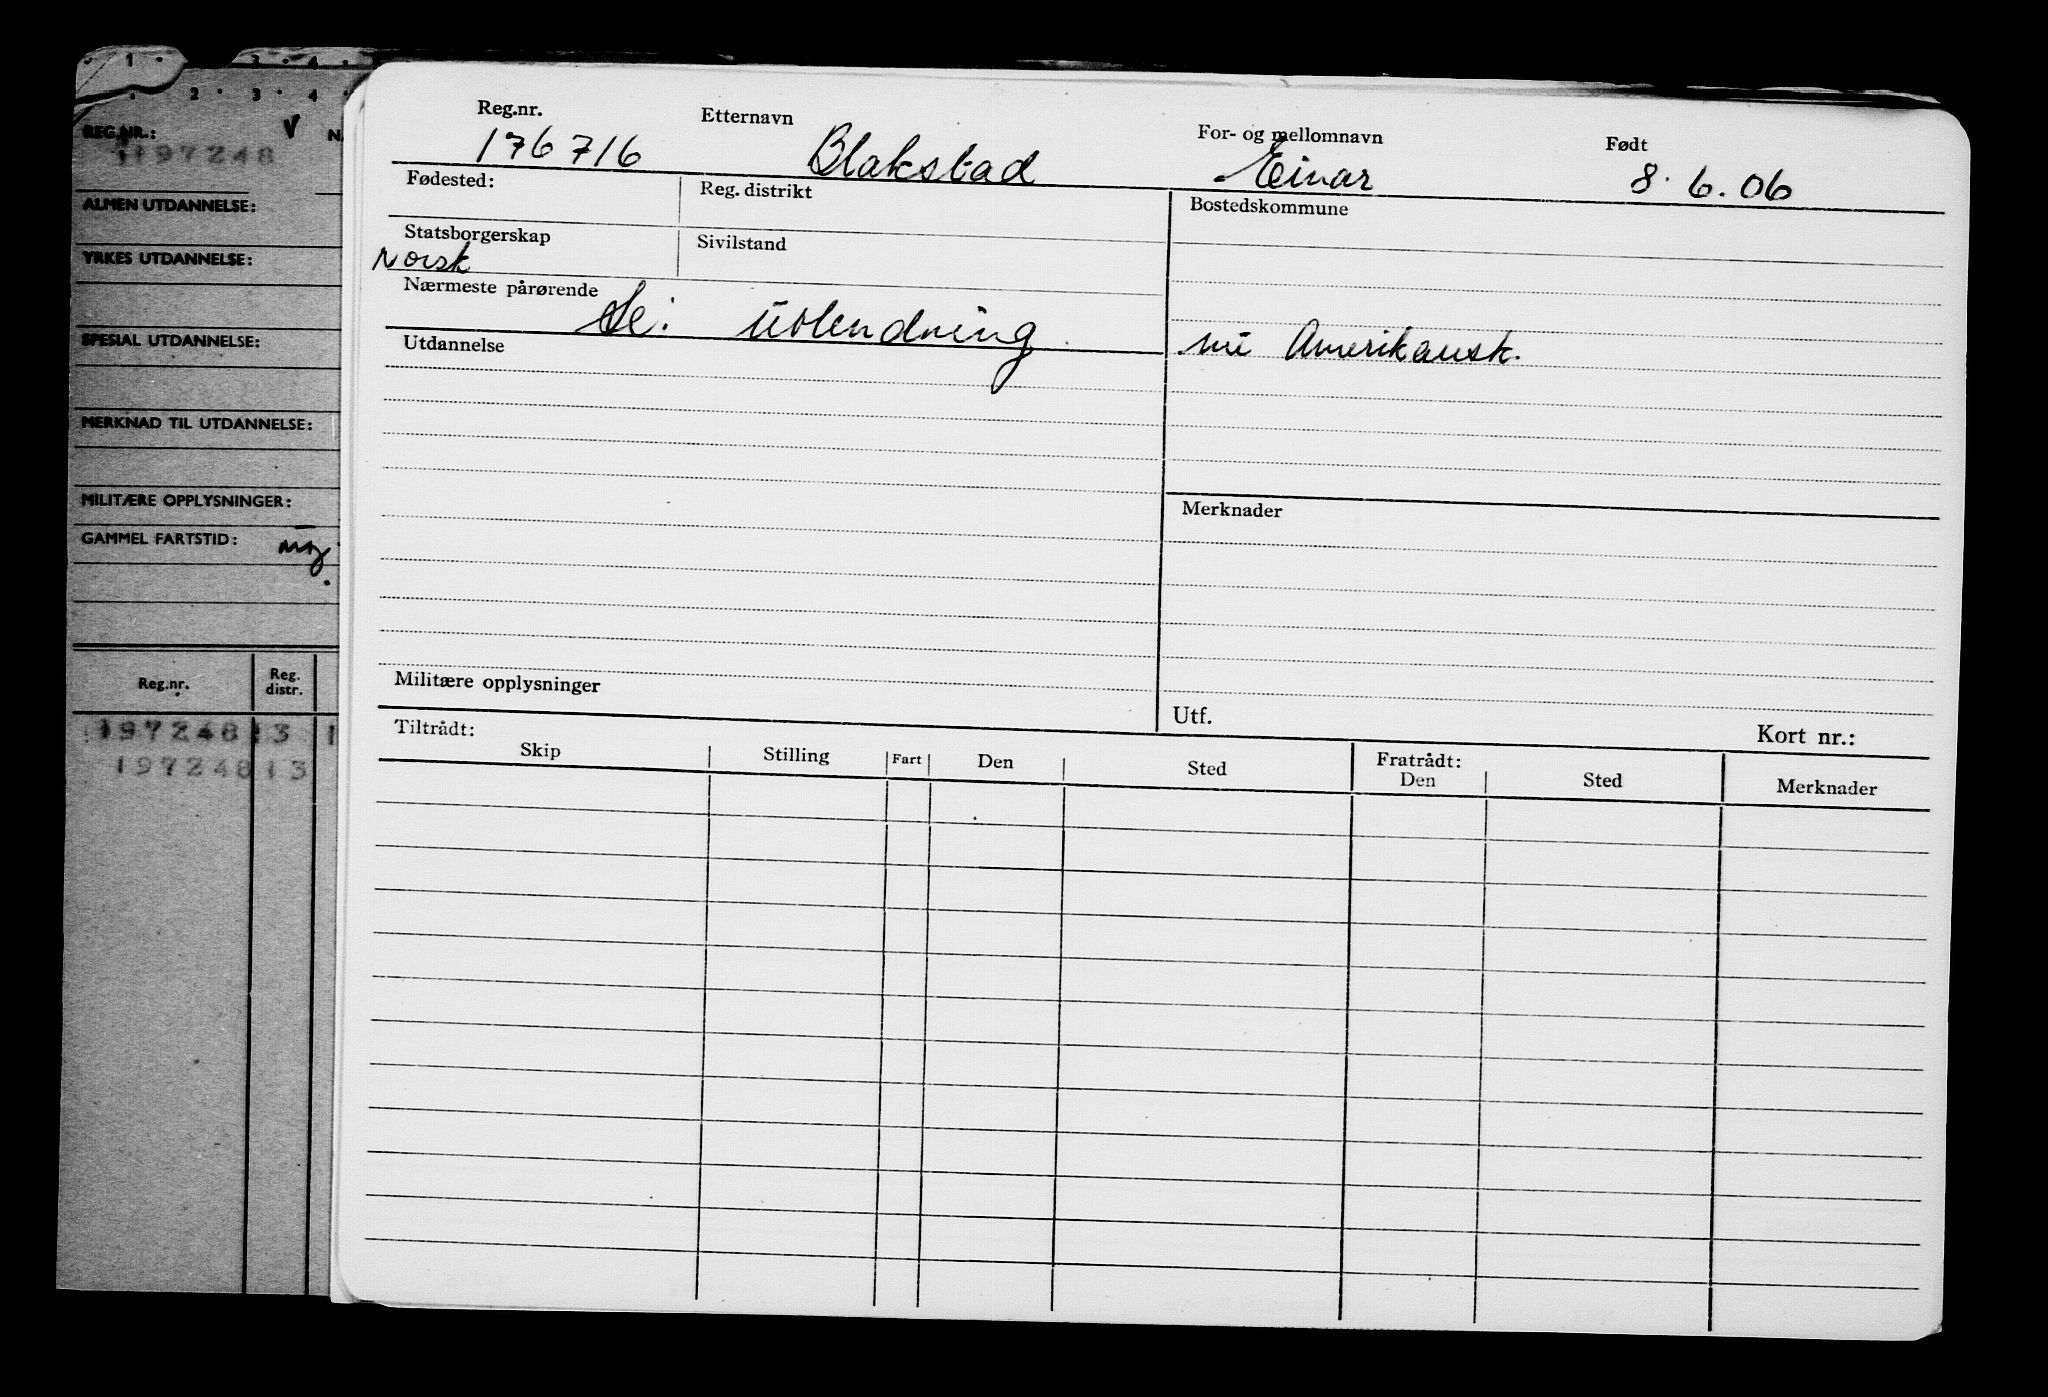 1 . 3 . 4 .
. 2 . 3 . 4 .
REG.NR.: V
1197248
ALMEN UTDANNELSE:
YRKES UTDANNELSE:
SPESIAL UTDANNELSE:
MERKNAD TIL UTDANNELSE:
MILITÆRE OPPLYSNINGER:
GAMMEL FARTSTID:
Reg.nr. Reg. distr.
197248 13 1
197248 13
Reg.nr. Etternavn For- og mellomnavn Født
176716 Blakstad Einar 8.6.06
Fødested: Reg. distrikt Bostedskommune
Statsborgerskap Sivilstand
Norsk
Nærmeste pårørende
Se: utlendning nu Amerikansk.
Utdannelse
Merknader
Militære opplysninger
Utf. Kort nr.:
Tiltrådt: Fratrådt:
Skip Stilling Fart Den Sted Den Sted Merknader